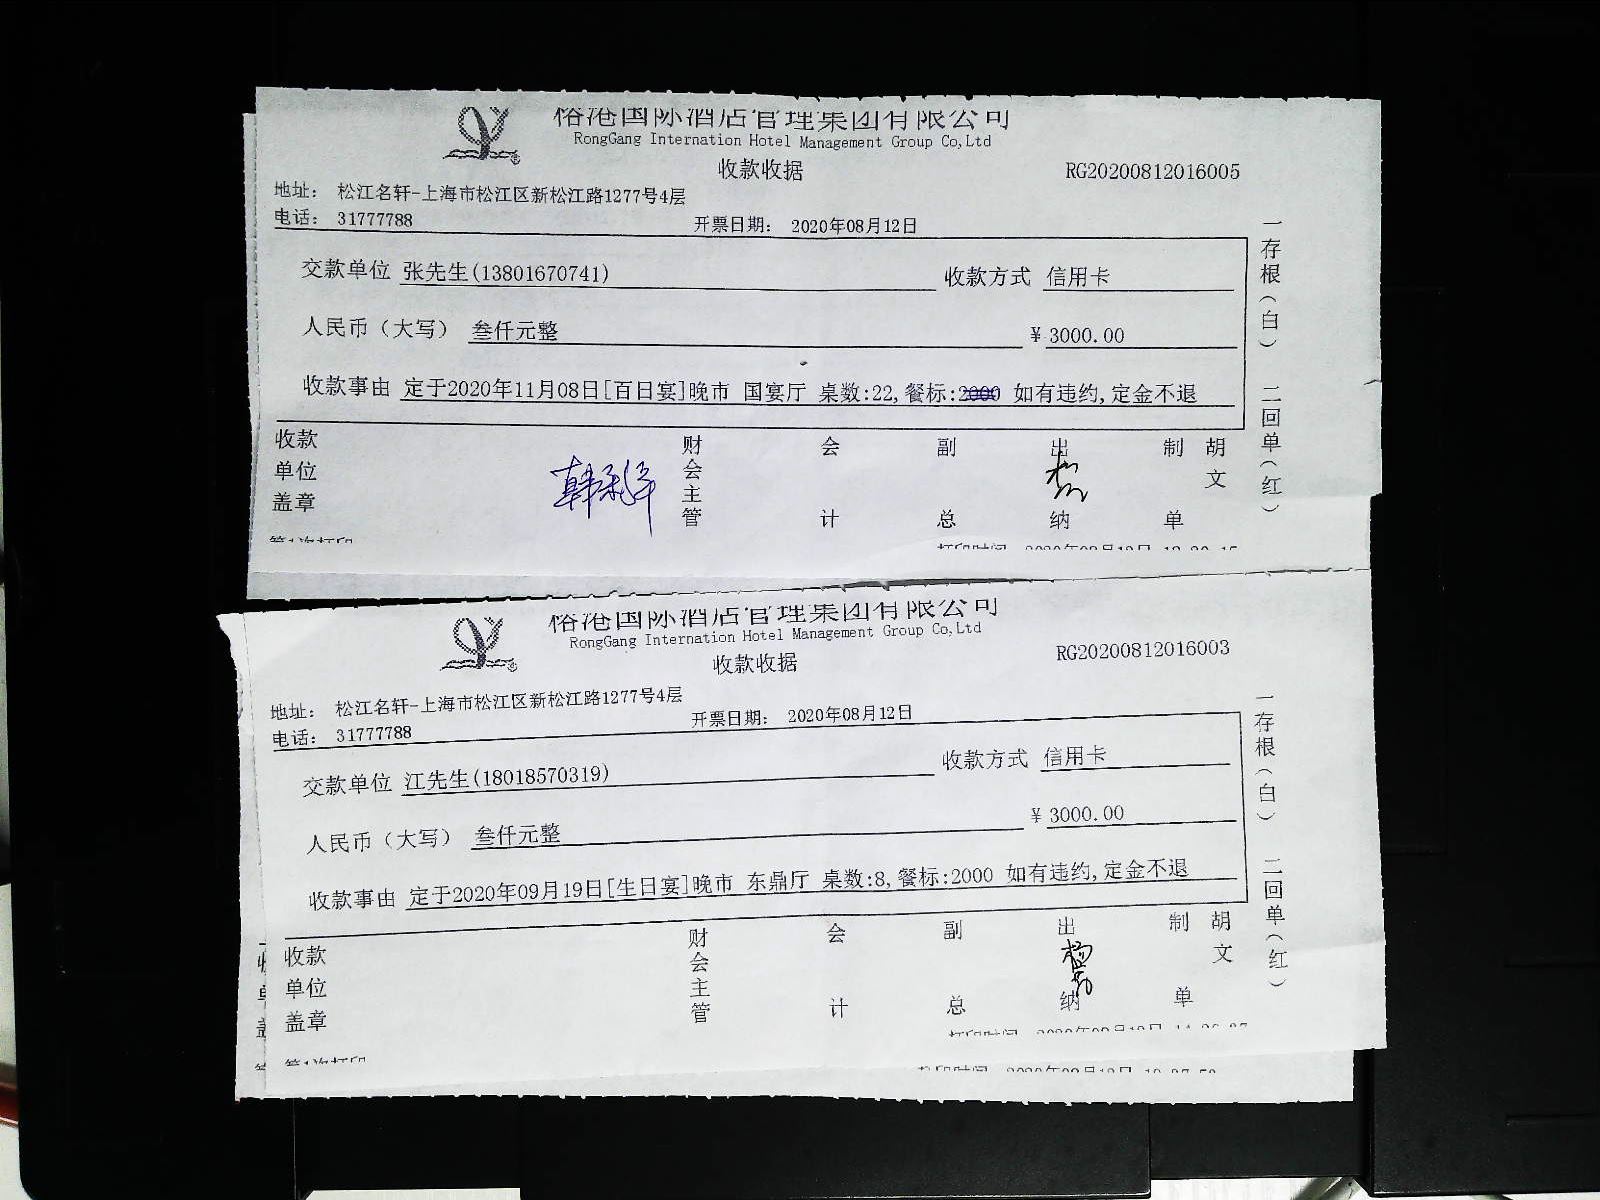 榕港国际酒店管理集团有限公司
RongGang Internation Hotel Management Group Co,Ltd
收款收据
RG20200812016005
地址： 松江名轩-上海市松江区新松江路1277号4层
电话： 31777788
开票日期： 2020年08月12日
交款单位 张先生(13801670741) 收款方式 信用卡
人民币（大写） 叁仟元整 ¥ 3000.00
收款事由 定于2020年11月08日[百日宴]晚市 国宴厅 桌数:22,餐标:2000 如有违约,定金不退
收款单位盖章 财会主管 会计 副总 出纳 制单 胡文
一存根（白） 二回单（红）
第1次打印
榕港国际酒店管理集团有限公司
RongGang Internation Hotel Management Group Co,Ltd
收款收据
RG20200812016003
地址： 松江名轩-上海市松江区新松江路1277号4层
电话： 31777788
开票日期： 2020年08月12日
交款单位 江先生(18018570319) 收款方式 信用卡
人民币（大写） 叁仟元整 ¥ 3000.00
收款事由 定于2020年09月19日[生日宴]晚市 东鼎厅 桌数:8,餐标:2000 如有违约,定金不退
收款单位盖章 财会主管 会计 副总 出纳 制单 胡文
一存根（白） 二回单（红）
第1次打印